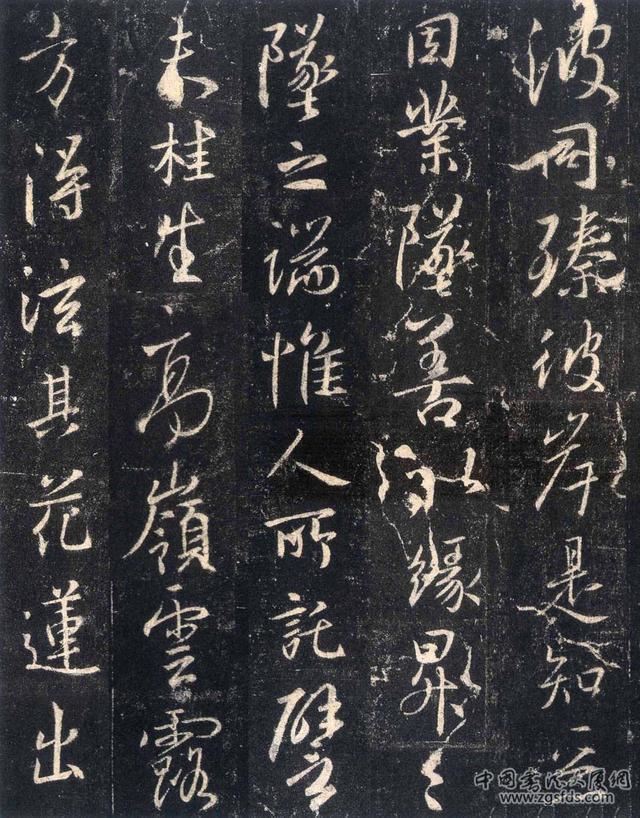 波同臻彼岸是知惡
因業墜善以緣昇々
墜之端惟人所託譬
夫桂生高嶺雲露
方得泫其花蓮出
中国书法大厦网
www.zgsfds.com